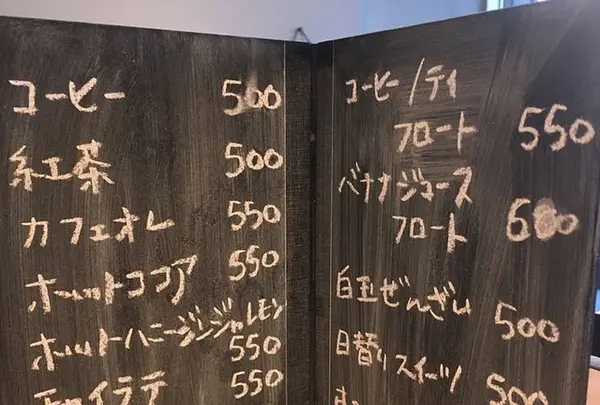 コーヒー 500
紅茶 500
カフェオレ 550
ホットココア 550
ホットハニージンジャレモン 550
チャイラテ 550
コーヒー/ティ
フロート 550
バナナジュース
フロート 600
白玉ぜんざい 500
日替りスイーツ 500